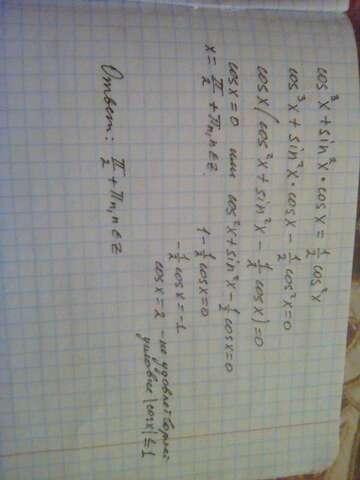 cos³x + sin²x · cosx = 1/2 cos²x
cos³x + sin²x · cosx - 1/2 cos²x = 0
cosx (cos²x + sin²x - 1/2 cosx) = 0
cosx = 0 или cos²x + sin²x - 1/2 cosx = 0
x = π/2 + πn, n∈Z. 1 - 1/2 cosx = 0
-1/2 cosx = -1
cosx = 2 - не удовлетворяет
условие |cosx| ≤ 1
Ответ: π/2 + πn, n∈Z